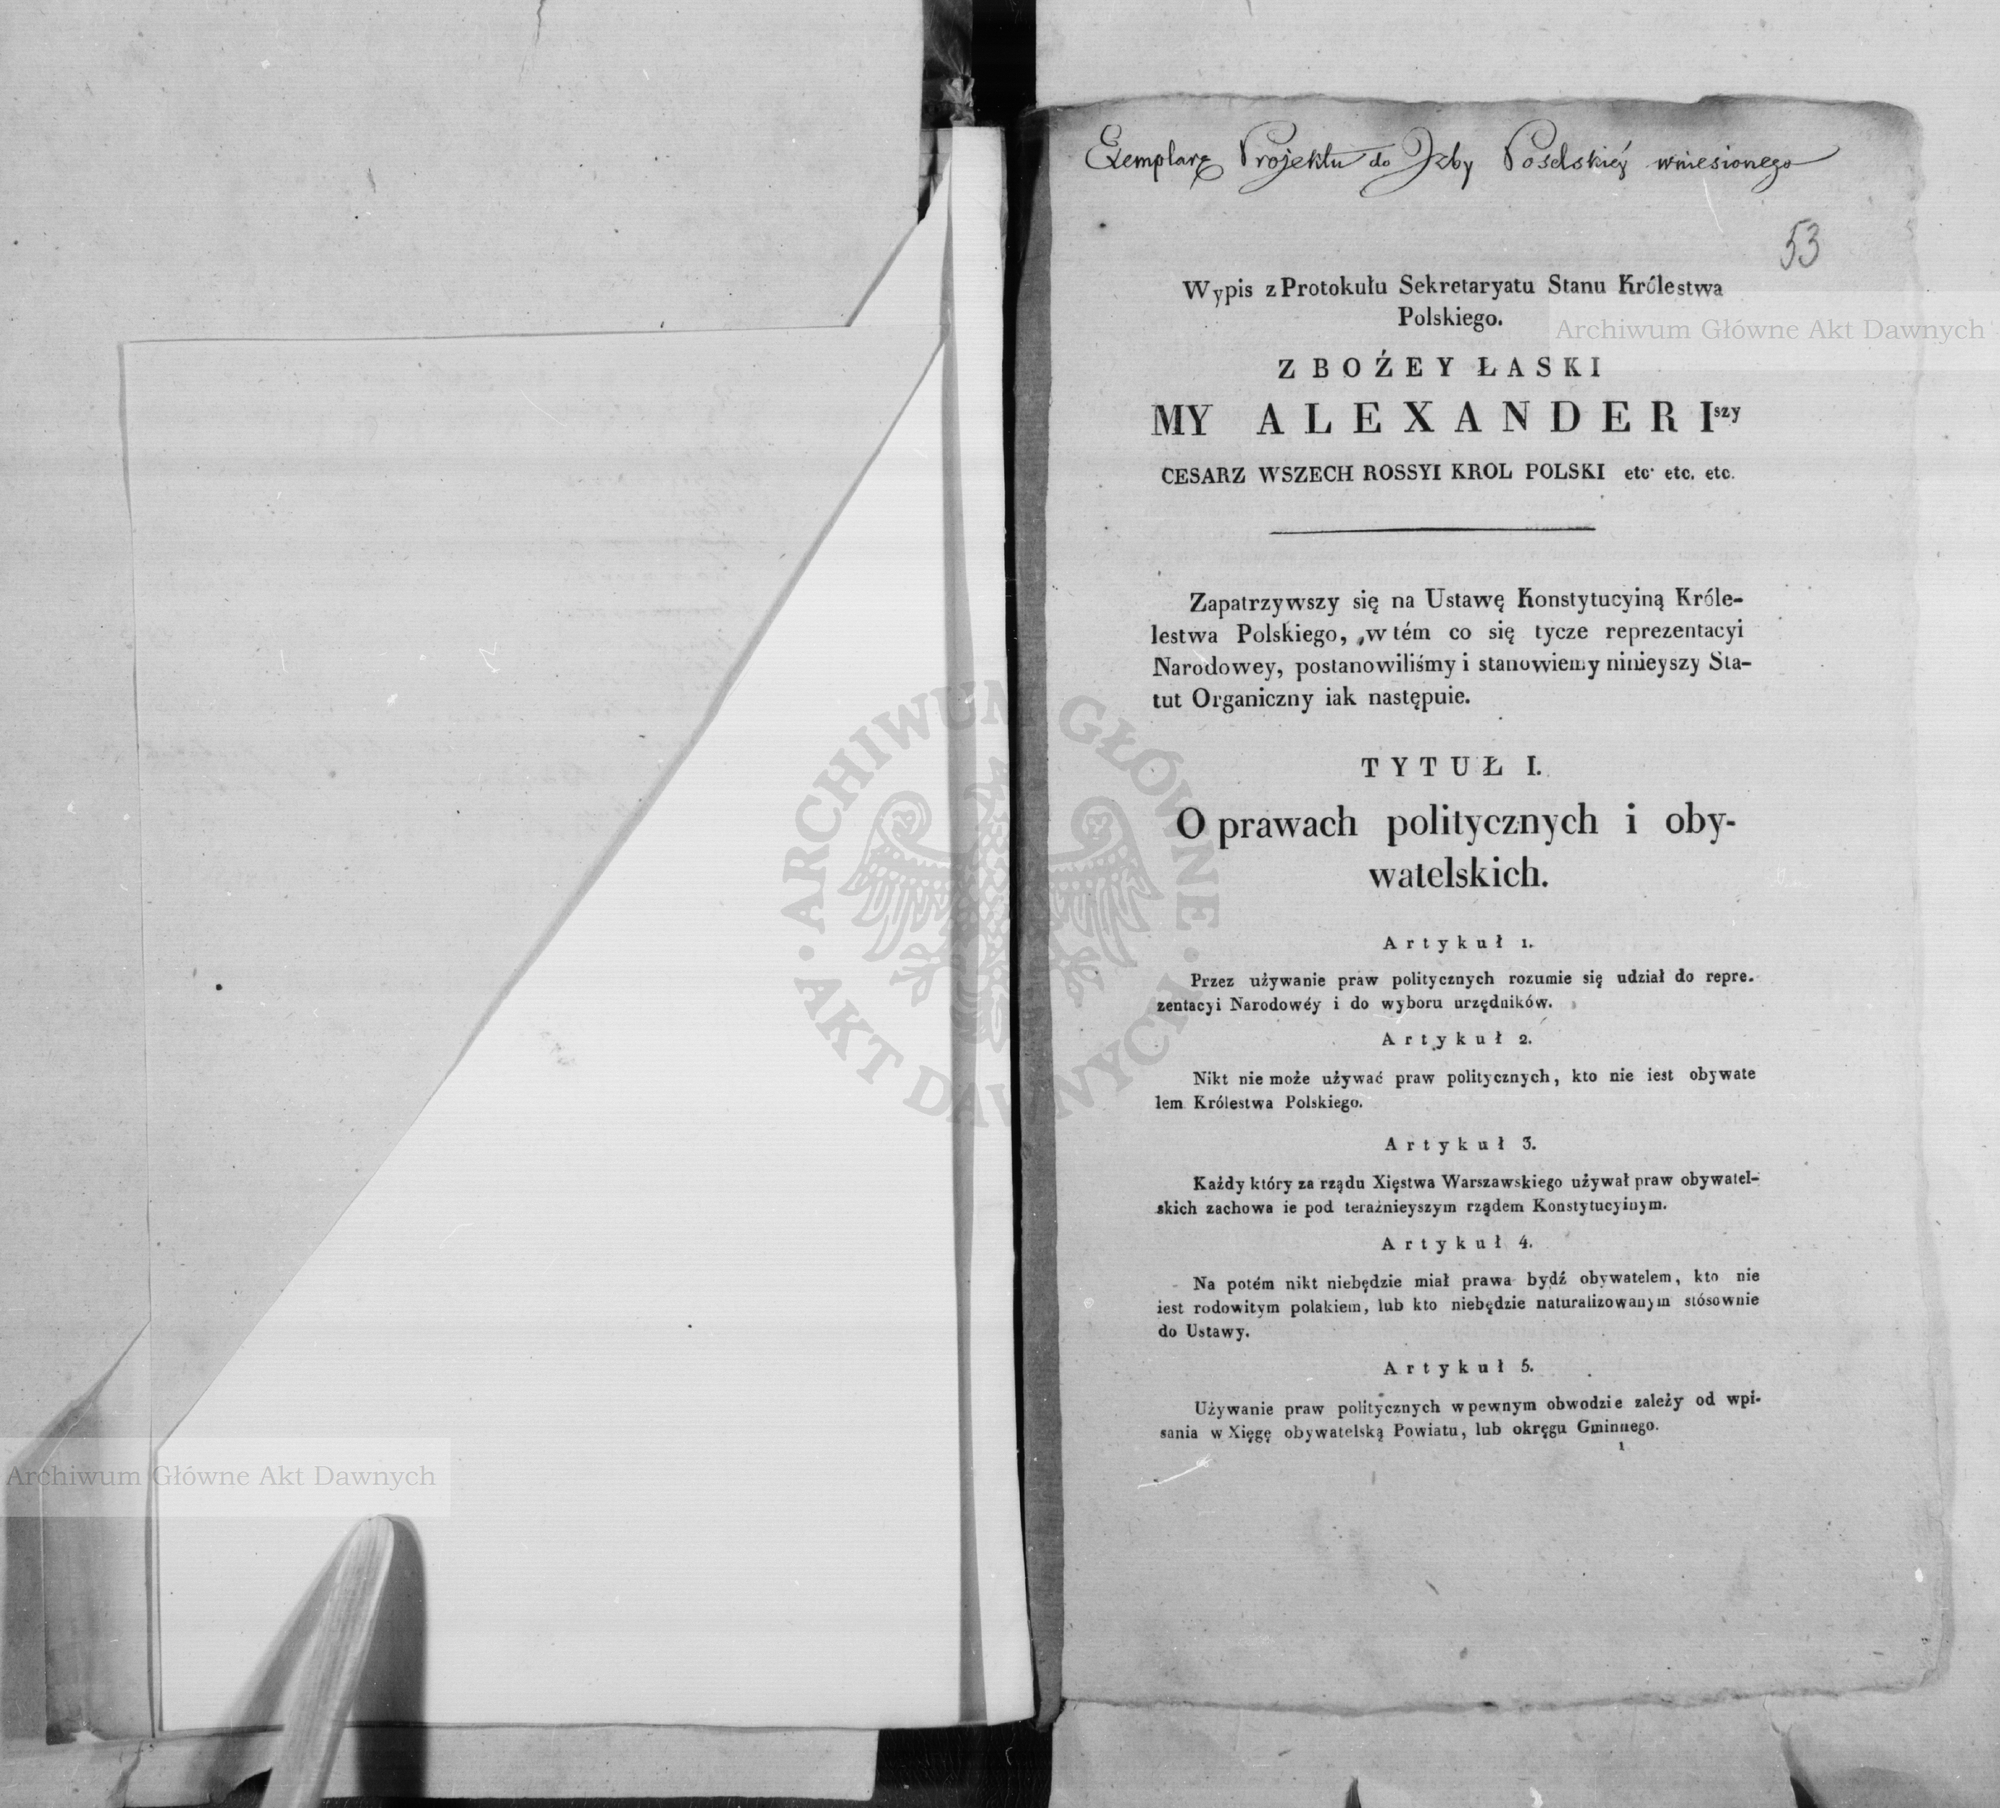 Exemplarz Projektu do Izby Poselskiéy wniesionego
53
Wypis z Protokułu Sekretaryatu Stanu Królestwa
Polskiego.
Z BOŹEY ŁASKI
MY ALEXANDER Iszy
CESARZ WSZECH ROSSYI KROL POLSKI etc. etc. etc.
Zapatrzywszy się na Ustawę Konstytucyiną Króle-
lestwa Polskiego, w tém co się tycze reprezentacyi
Narodowey, postanowiliśmy i stanowiemy ninieyszy Sta-
tut Organiczny iak następuie.
TYTUŁ I.
O prawach politycznych i oby-
watelskich.
Artykuł 1.
Przez używanie praw politycznych rozumie się udział do repre-
zentacyi Narodowéy i do wyboru urzędników.
Artykuł 2.
Nikt nie może używać praw politycznych, kto nie iest obywate
lem Królestwa Polskiego.
Artykuł 3.
Każdy który za rządu Xięstwa Warszawskiego używał praw obywatel-
skich zachowa ie pod teraźnieyszym rządem Konstytucyinym.
Artykuł 4.
Na potém nikt niebędzie miał prawa bydź obywatelem, kto nie
iest rodowitym polakiem, lub kto niebędzie naturalizowanym stósownie
do Ustawy.
Artykuł 5.
Używanie praw politycznych w pewnym obwodzie zależy od wpi-
sania w Xięgę obywatelską Powiatu, lub okręgu Gminnego.
1
Archiwum Główne Akt Dawnych
ARCHIWUM GŁÓWNE
AKT DAWNYCH
Archiwum Główne Akt Dawnych